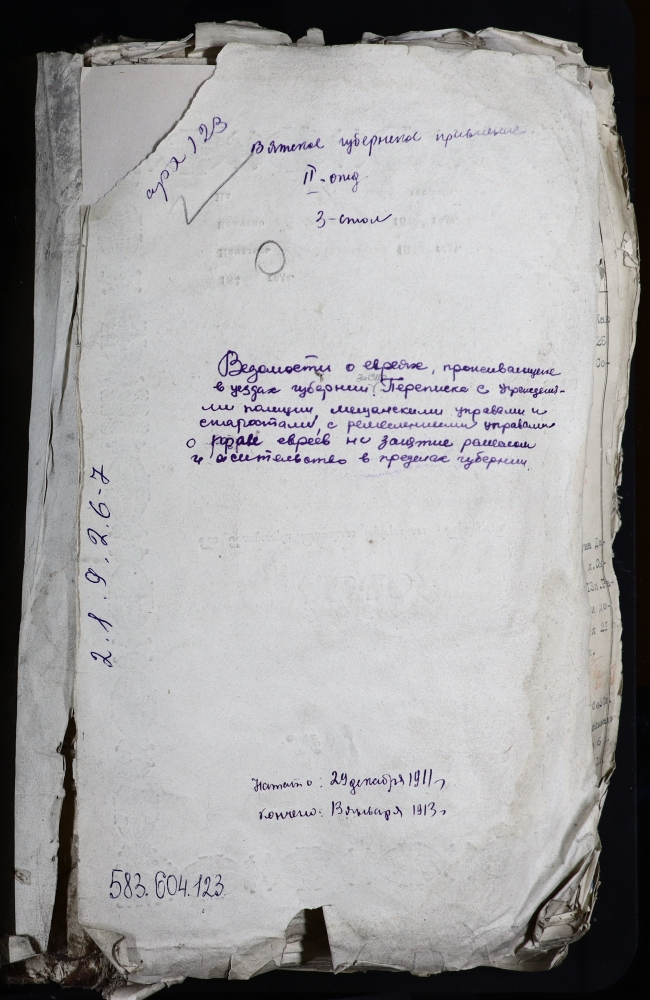 арх 123
Вятское губернское правление
II-отд
3-стол
Ведомости о евреях, проживающие
в уездах губернии. Переписка с учрежден-
ми полиции, мещанскими управами и
старостами, с ремесленными управами
о праве евреев на занятие ремеслом
и жительство в пределах губернии.
2.1.9.2.6-7
Начато: 29 декабря 1911 г.
кончено: 13 января 1913 г.
583.604.123